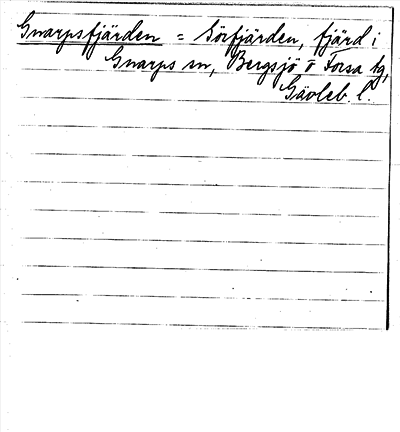 Gnarpsfjärden = Sörfjärden, fjärd i
Gnarps sn, Bergsjö o Forsa tg,
Gävleb. l.